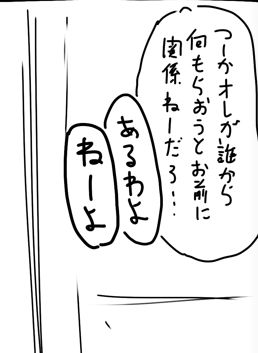 つーかオレが誰から
何もらおうとお前に
関係ねーだろ…
あるわよ
ねーよ